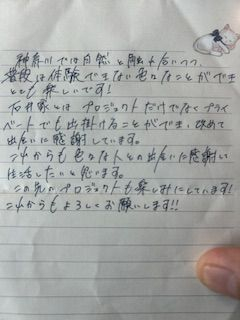 神奈川では自然と触れ合いつつ、
普段は体験できない色々なことができ
とても楽しいです!
石井家とは プロジェクトだけでなくプライ
ベートでも出掛けることができ、改めて
出会いに感謝しています。
これからも色々な人との出会いに感謝して
生活したいと思います。
この先のプロジェクトも楽しみにしています!
これからもよろしくお願いします!!